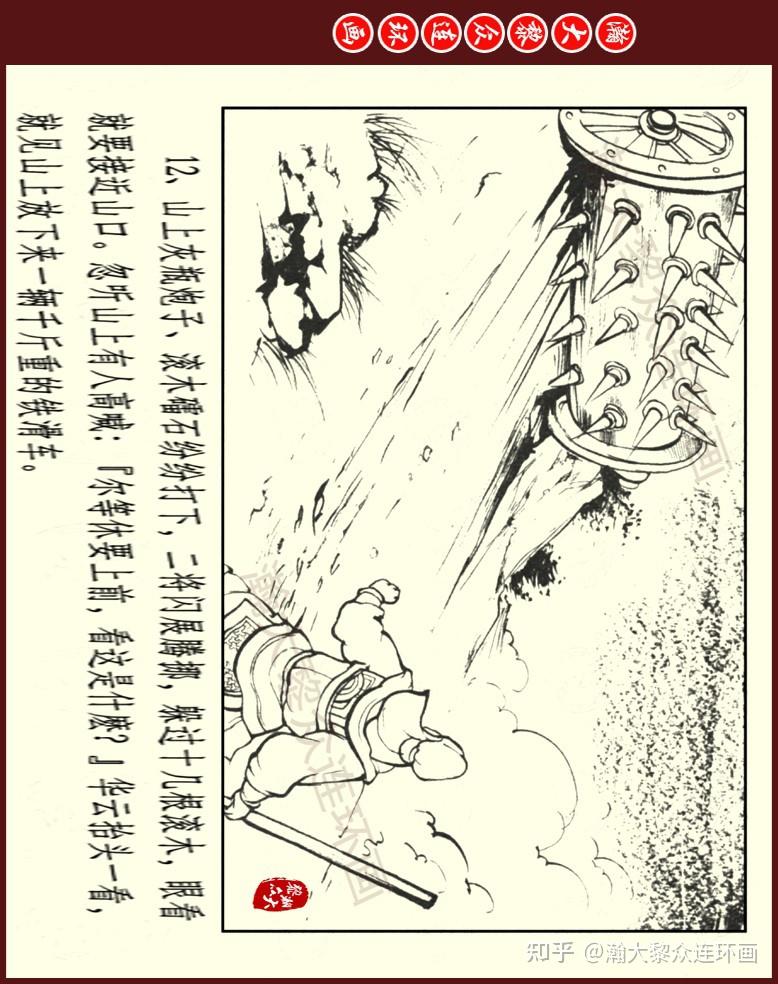 瀚大黎众连环画
12、山上灰瓶炮子、滚木礌石纷纷打下，二将闪展腾挪，躲过十几根滚木，眼看
就要接近山口。忽听山上有人高喊：『尔等休要上前，看这是什麽？』华云抬头一看，
就见山上放下来一辆千斤重的铁滑车。
瀚大黎众连环画
知乎 @瀚大黎众连环画